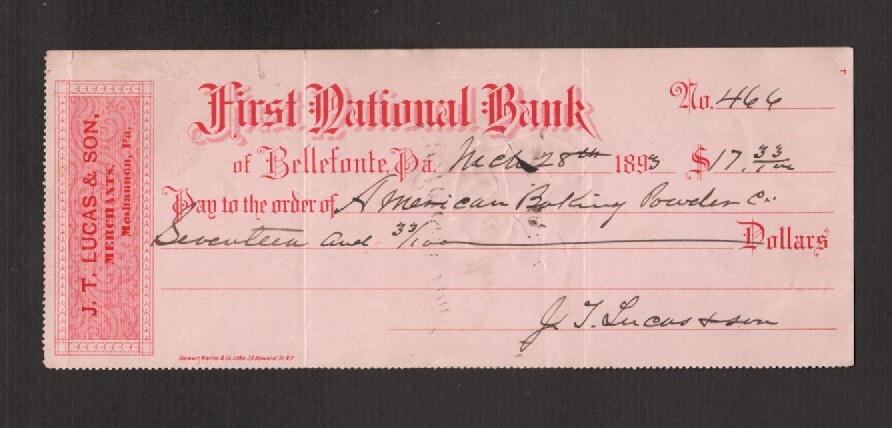 J. T. LUCAS & SON,
MERCHANTS,
Moshannon, Pa.
First National Bank
No. 466
of Bellefonte, Pa. Mch 28th 1893 $17.33/100
Pay to the order of American Baking Powder Co.
Seventeen and 33/100 Dollars
J. T. Lucas & Son
Stewart, Warren & Co. Litho. 29 Howard St. N.Y.